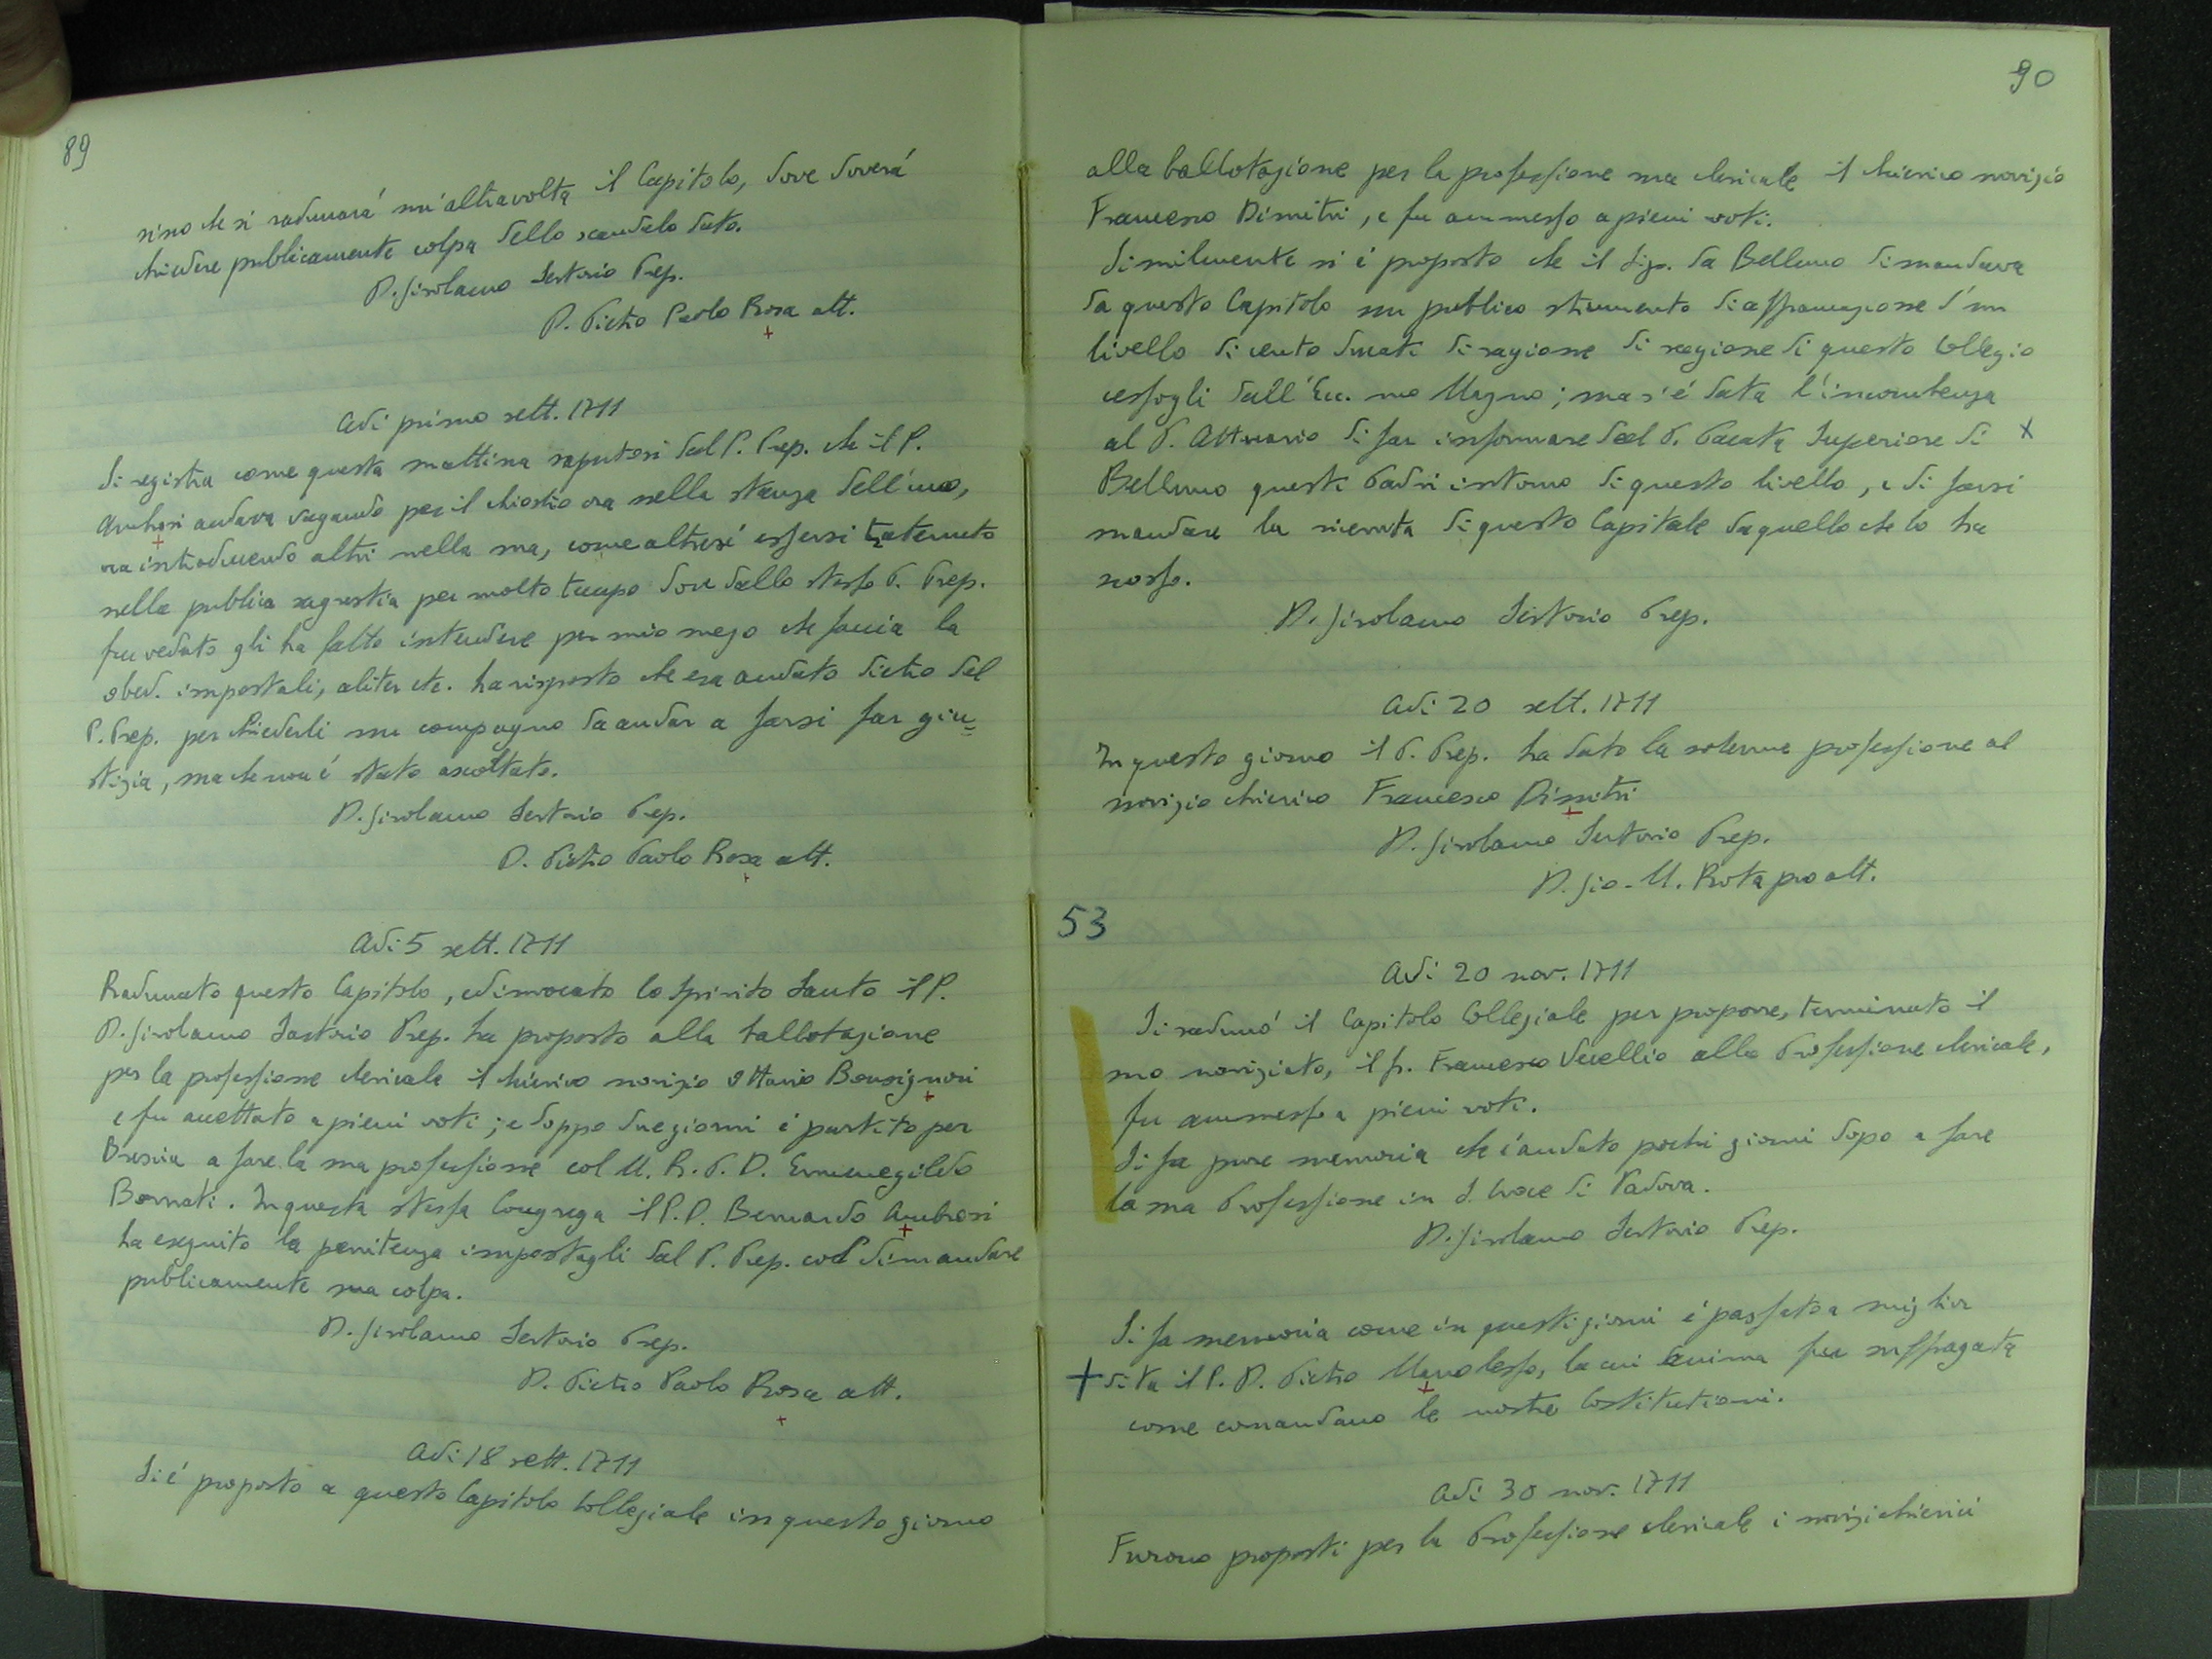 89
sino che si radunará un'altra volta il Capitolo, dove doverá
chiedere publicamente colpa dello scandalo dato.
D. Girolamo Sertorio Prep.
D. Pietro Paolo Rosa att.
Adi primo sett. 1711
Si registra come questa mattina saputosi dal P. Prep. che il P.
Ambrosi andava vagando per il chiostro ora nella stanza dell'uno,
ora introducendo altri nella sua, come altresí essersi tratenuto
nella publica sagrestia per molto tempo dove dallo stesso P. Prep.
fu veduto gli ha fatto intendere per mio mezo che faccia la
obed. impostali, aliter etc. ha risposto che era andato dietro del
P. Prep. per chiederli un compagno da andar a farsi far giu=
stizia, ma che non é stato ascoltato.
D. Girolamo Sertorio Prep.
D. Pietro Paolo Rosa att.
Adi 5 sett. 1711
Radunato questo Capitolo, ed invocato lo Spirito Santo il P.
D. Girolamo Sertorio Prep. ha proposto alla ballotazione
per la professione clericale il chierico novizio Ottavio Bonsignori
e fu accettato a pieni voti; e doppo due giorni é partito per
Brescia a fare la sua professione col M. R. P. D. Ermenegildo
Bornati. In questa stessa Congrega il P. D. Bernardo Ambrosi
ha eseguito la penitenza impostagli dal P. Prep. col dimandare
publicamente sua colpa.
D. Girolamo Sertorio Prep.
D. Pietro Paolo Rosa att.
Adi 18 sett. 1711
Si é proposto a questo Capitolo Collegiale in questo giorno
90
alla ballotazione per la professione sua clericale il chierico novizio
Francesco Dimitri, e fu ammesso a pieni voti.
Similmente si é proposto che il Sig. da Belluno dimandava
da questo Capitolo un publico strumento di affrancazione d'un
livello di cento ducati di ragione di ragione di questo Collegio
cessogli dall'Ecc. mo Magno; ma s'é data l'incombenza
al P. Attuario di far informare dal P. Pacata Superiore di
Belluno questi Padri intorno di questo livello, e di farsi
mandare la ricevuta di questo Capitale da quello che lo ha
scosso.
D. Girolamo Sertorio Prep.
Adi 20 sett. 1711
In questo giorno il P. Prep. ha dato la solenne professione al
novizio chierico Francesco Dimitri
D. Girolamo Sertorio Prep.
D. Gio. M. Rota pro att.
53
Adi 20 nov. 1711
Si radunó il Capitolo Collegiale per proporre, terminato il
suo noviziato, il fr. Francesco Vecellio alla Professione clericale,
fu ammesso a pieni voti.
Si fa pure memoria che é andato pochi giorni dopo a fare
la sua Professione in S. Croce di Padova.
D. Girolamo Sertorio Prep.
Si fa memoria come in questi giorni é passato a miglior
+ vita il P. D. Pietro Manolesso, la cui anima fu suffragata
come comandano le nostre Costitutioni.
Adi 30 nov. 1711
Furono proposti per la Professione clericale i novizi chierici